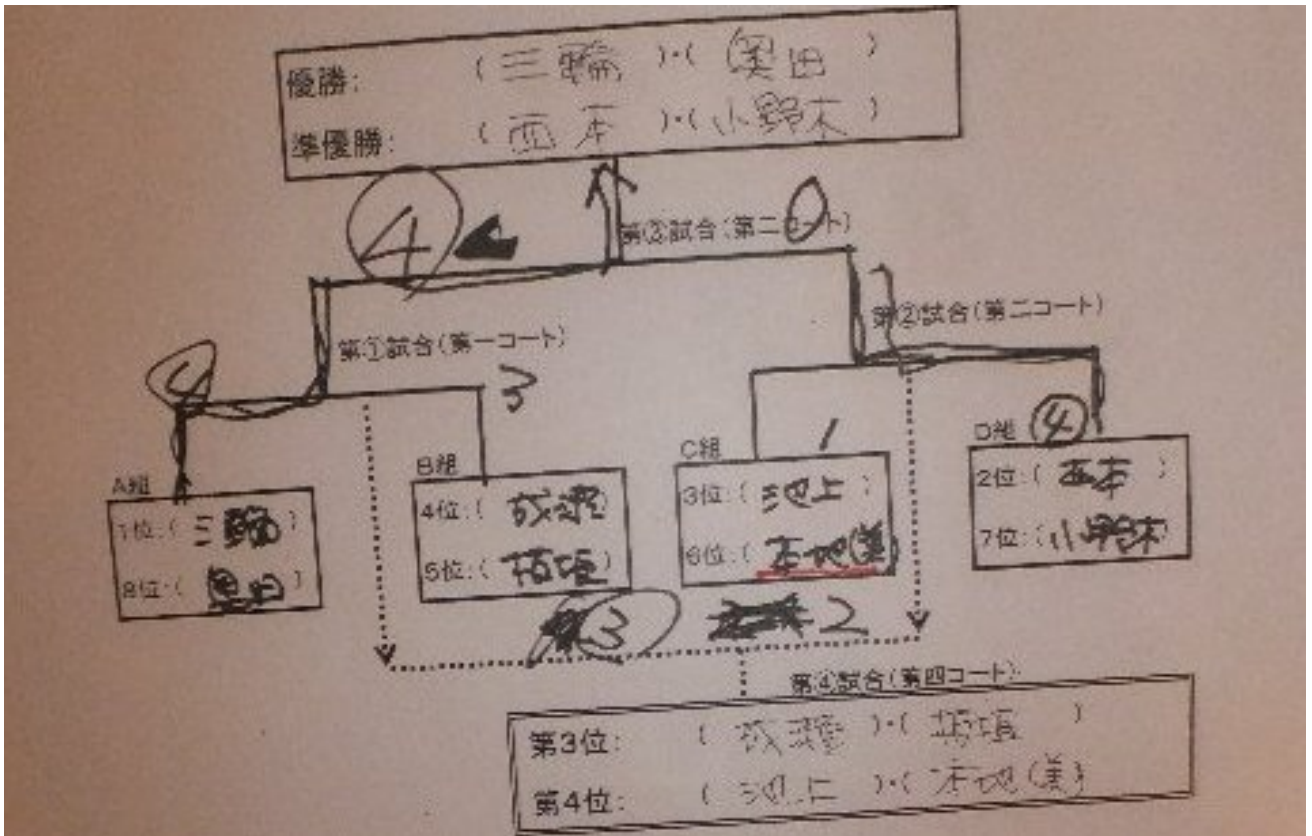 優勝: (三輪)・(奥田)
準優勝: (西本)・(小野木)
④ 0
第③試合(第二コート)
第②試合(第二コート)
第①試合(第一コート)
④ 3
1 ④
A組 B組 C組 D組
1位:(三輪)
8位:(奥田)
4位:(成瀬)
5位:(板垣)
3位:(池上)
6位:(本地(美))
2位:(西本)
7位:(小野木)
③ 2
第④試合(第四コート)
第3位: (成瀬)・(板垣)
第4位: (池上)・(本地(美))